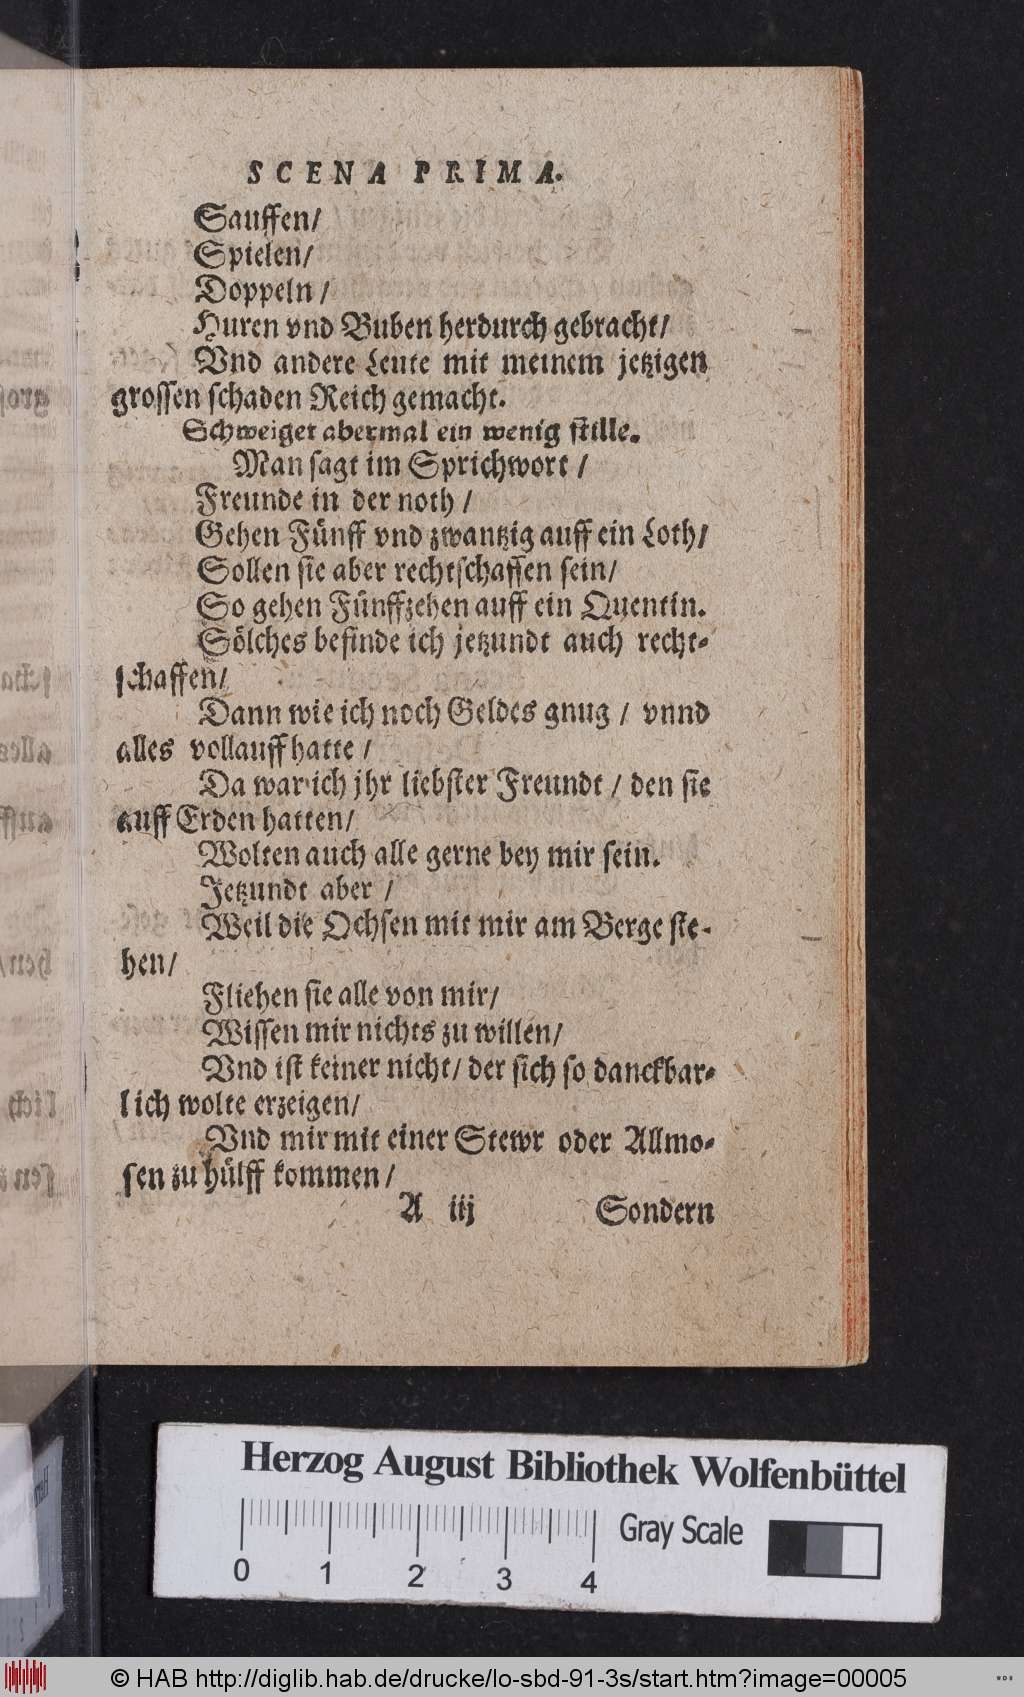 SCENA PRIMA.
Sauffen/
Spielen/
Doppeln/
Huren vnd Buben herdurch gebracht/
Vnd andere Leute mit meinem jetzigen
grossen schaden Reich gemacht.
Schweiget abermal ein wenig stille.
Man sagt im Sprichwort/
Freunde in der noth/
Gehen Fünff vnd zwantzig auff ein Loth/
Sollen sie aber rechtschaffen sein/
So gehen Fünffzehen auff ein Quentin.
Sölches befinde ich jetzundt auch recht-
schaffen/
Dann wie ich noch Geldes gnug/ vnnd
alles vollauff hatte/
Da war ich jhr liebster Freundt/ den sie
auff Erden hatten/
Wolten auch alle gerne bey mir sein.
Jetzundt aber/
Weil die Ochsen mit mir am Berge ste-
hen/
Fliehen sie alle von mir/
Wissen mir nichts zu willen/
Vnd ist keiner nicht/ der sich so danckbar-
lich wolte erzeigen/
Vnd mir mit einer Stewr oder Allmo-
sen zu hülff kommen/
A iij Sondern
Herzog August Bibliothek Wolfenbüttel
Gray Scale
0 1 2 3 4
© HAB http://diglib.hab.de/drucke/lo-sbd-91-3s/start.htm?image=00005